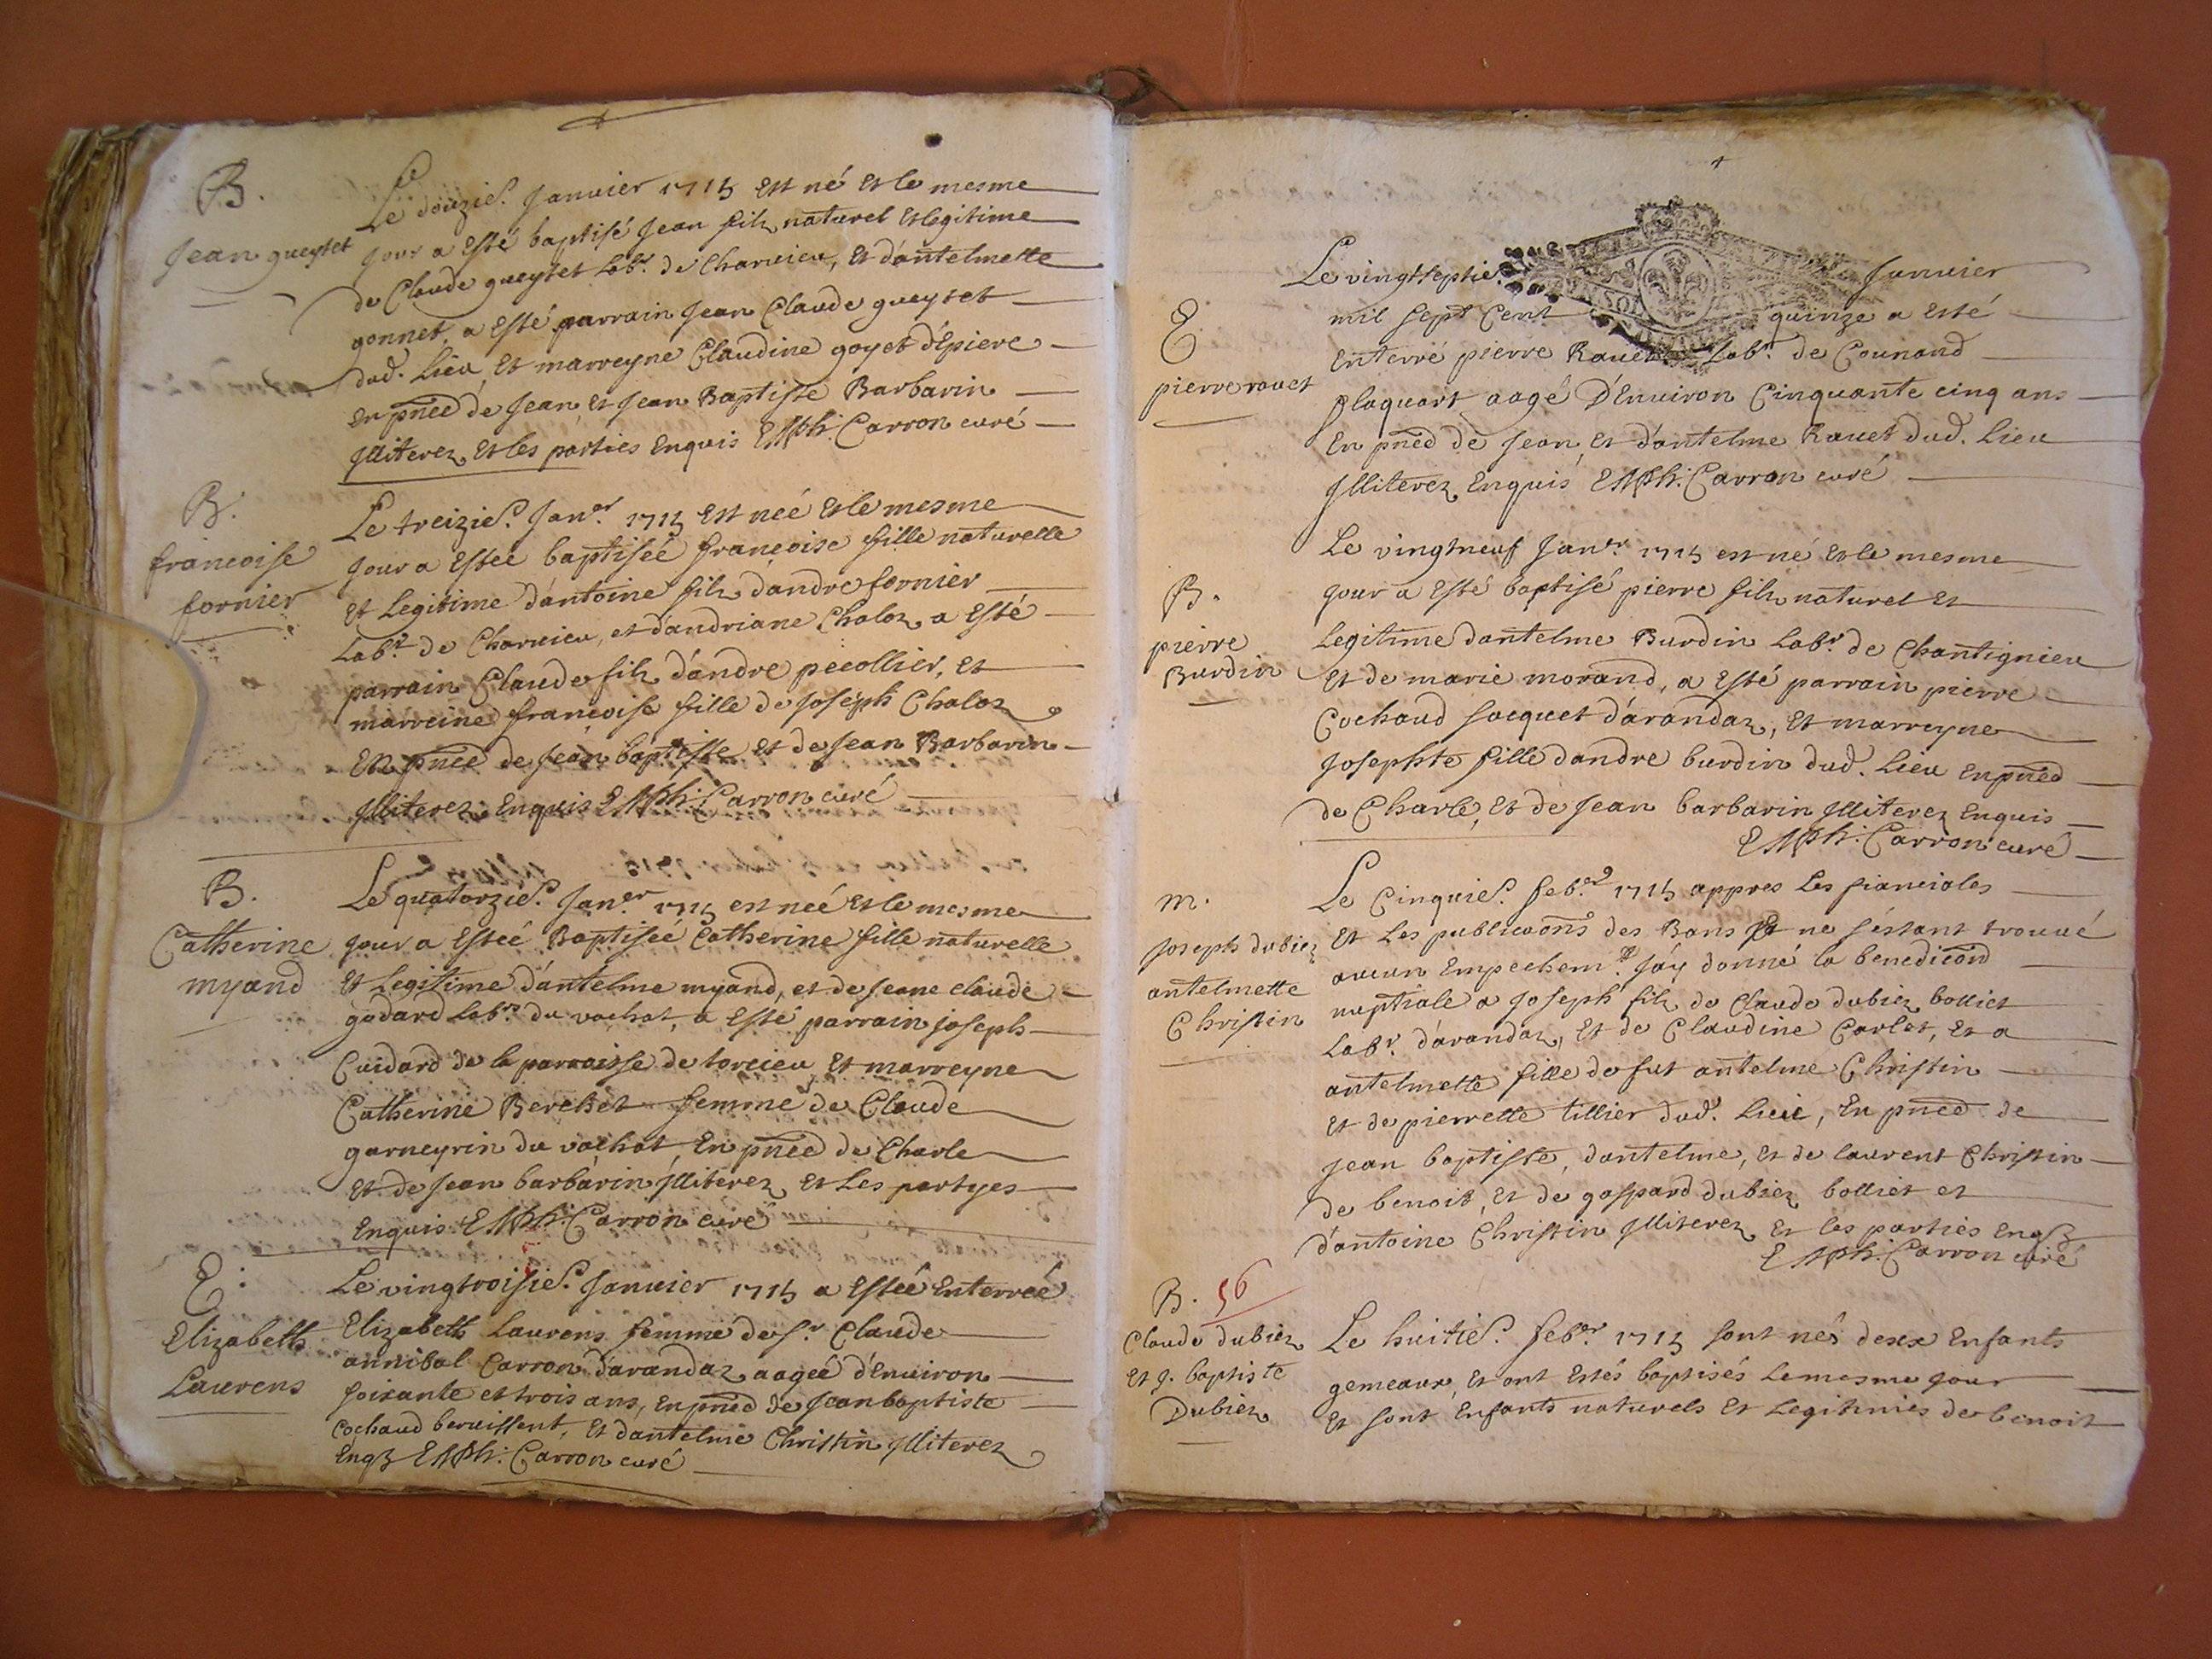 B.
Jean gueytet
Le douzie. Januier 1715 Est né Et le mesme
jour a Esté baptisé Jean filz naturel Et legitime
de Claude gueytet Labr. de Charuieu, Et d'antelmette
gonnet, a Esté parrain Jean Claude gueytet
dud. Lieu, Et marreyne Claudine goyet d'Epiere
en pned de Jean, Et Jean Baptiste Barbarin
Jlliterez, Et les parties Enquis Carron curé
B.
francoise
fornier
Le treizie. Janer. 1715 Est née Et le mesme
jour a Estée baptisée françoise fille naturelle
Et Legitime d'antoine filz d'andre fornier
Labr. de Charuieu, et d'andriane Chaloz a Esté
parrain Claude filz d'andre pecollier, Et
marreine françoise fille de Joseph Chaloz
En pned de Jean baptiste Et de Jean Barbarin
Jlliterez Enquis Carron curé
B.
Catherine
myand
Le quatorzie. Janer. 1715 est née Et le mesme
jour a Estée Baptisée Catherine fille naturelle
Et Legitime d'antelme myand, et de Jeane claude
godard Labr. du vachat, a Esté parrain joseph
Cuidard de la parroisse de torcieu, Et marreyne
Catherine Berchet femme de Claude
garneyrin du vachat, En pned de Charle
Et de Jean barbarin Jlliterez, Et Les partyes
Enquis Carron curé
E:
Elizabeth
Laurens
Le vingtroisie. Januier 1715 a Estée Enterreé
Elizabeth Laurens femme de Sr. Claude
annibal Carron d'arandaz aageé d'Enuiron
soixante et trois ans, en pned de Jean baptiste
Cochaud beruissent, Et d'antelme Christin Jlliterez
Carron curé
E
pierre rauet
Le vingtseptie. Januier
mil sept Cent quinze a Esté
Enterré pierre Rauet Labr. de Counand
plaquart aagé D'Enuiron Cinquante cinq ans
En pned de Jean, Et d'antelme Rauet dud. Lieu
Jlliterez Enquis Carron curé
B.
pierre
Burdin
Le vingtneuf Janer. 1715 est né Et le mesme
jour a Esté baptisé pierre filz naturel Et
Legitime d'antelme Burdin Labr. de Chantignieu
Et de marie morand, a Esté parrain pierre
Cochaud Jacquet d'arandaz, Et marreyne
Josephte fille d'andre burdin dud. Lieu en pned
de Charle, Et de Jean barbarin Jlliterez Enquis
Carron curé
m.
joseph dubiez
antelmette
Christin
Le Cinquie. feber 1715 appres Les fiancioles
Et Les publicaons des Bans Et ne s'éstant trouué
aucun Empechemt. J'áy donné la benedicaon
nuptiale a Joseph filz de Claude dubiez bolliet
Labr. d'arandaz, Et de Claudine Carlet, Et a
antelmette fille de fut antelme Christin
Et de pierrette tillier dud. Lieu, En pned de
Jean baptiste, d'antelme, Et de Laurent Christin
de benoit, Et de gaspard dubiez bolliet et
d'antoine Christin Jlliterez Et les parties
Carron curé
B. 56
Claude dubiez
Et J. baptiste
Dubiez
Le huitie. feber 1715 sont nés deux Enfants
gemeaux, Et ont Estés baptisés Le mesme jour
Et sont Enfants naturels Et Legitimes de benoit